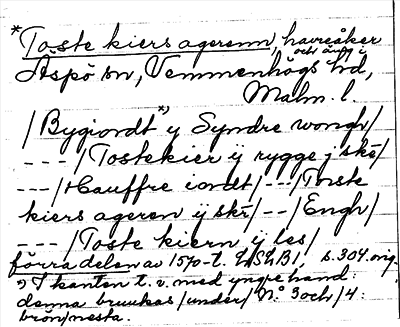 *Toste kiers agerenn, havreåker
och äng i
Äspö sn, Vemmenhögs hd,
Malm. l.
/Bygiordt *) y Syndre wongh/
---/Tostekier ÿ rygge j skr/
---/Hauffre iordet/---/Toste
kiers ageren ÿ skr/--/Engh/
---/Toste kiern ÿ les/
förra delen av 1570-t. LSLB1, s. 304. orig.
*) I kanten t. v. med yngre hand:
denna bruukas/under/N:o 3 och/4:
brön/nesta.